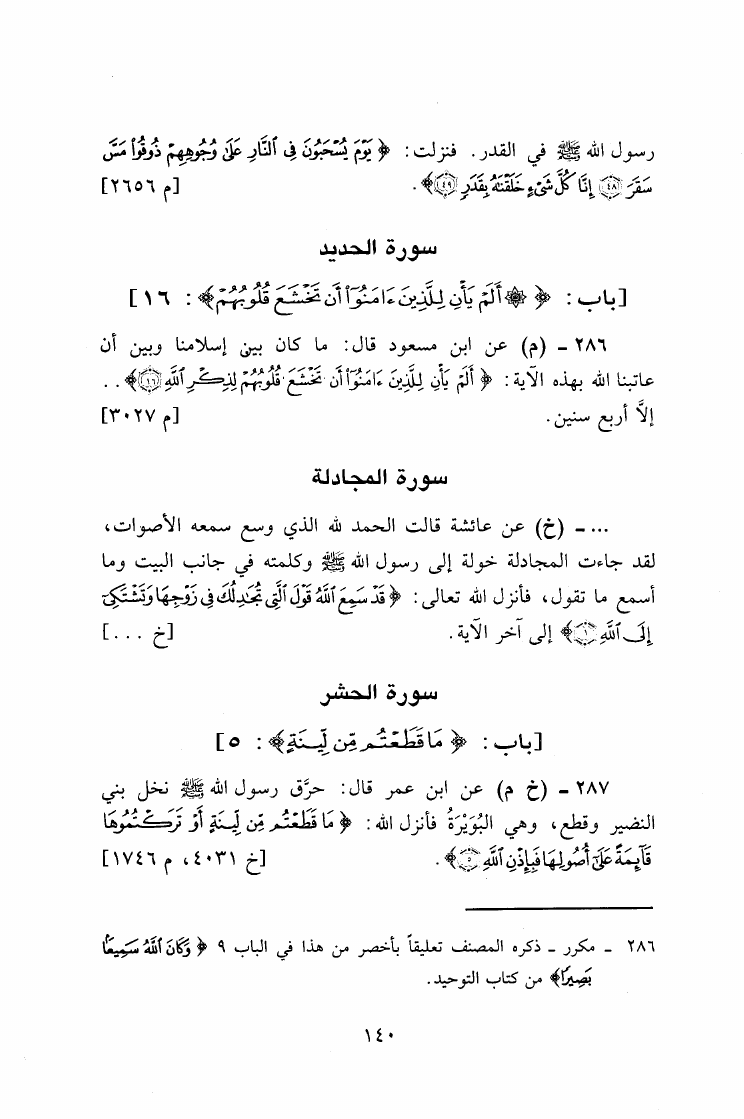 رسول الله ﷺ في القدر. فنزلت: ﴿ يَوْمَ يُسْحَبُونَ فِي ٱلنَّارِ عَلَىٰ وُجُوهِهِمْ ذُوقُوا۟ مَسَّ
سَقَرَ ﴿٤٨﴾ إِنَّا كُلَّ شَىْءٍ خَلَقْنَٰهُ بِقَدَرٍ ﴿٤٩﴾﴾. [م ٢٦٥٦]
سورة الحديد
[باب: ﴿ ۞ أَلَمْ يَأْنِ لِلَّذِينَ ءَامَنُوٓا۟ أَن تَخْشَعَ قُلُوبُهُمْ﴾: ١٦]
٢٨٦ - (م) عن ابن مسعود قال: ما كان بين إسلامنا وبين أن
عاتبنا الله بهذه الآية: ﴿ أَلَمْ يَأْنِ لِلَّذِينَ ءَامَنُوٓا۟ أَن تَخْشَعَ قُلُوبُهُمْ لِذِكْرِ ٱللَّهِ ﴿١٦﴾﴾..
إلاَّ أربع سنين. [م ٣٠٢٧]
سورة المجادلة
... - (خ) عن عائشة قالت الحمد لله الذي وسع سمعه الأصوات،
لقد جاءت المجادلة خولة إلى رسول الله ﷺ وكلمته في جانب البيت وما
أسمع ما تقول، فأنزل الله تعالى: ﴿ قَدْ سَمِعَ ٱللَّهُ قَوْلَ ٱلَّتِى تُجَٰدِلُكَ فِى زَوْجِهَا وَتَشْتَكِىٓ
إِلَى ٱللَّهِ ﴿١﴾﴾ إلى آخر الآية. [خ ...]
سورة الحشر
[باب: ﴿ مَا قَطَعْتُم مِّن لِّينَةٍ﴾: ٥]
٢٨٧ - (خ م) عن ابن عمر قال: حرَّق رسول الله ﷺ نخل بني
النضير وقطع، وهي البُوَيْرَةُ فأنزل الله: ﴿ مَا قَطَعْتُم مِّن لِّينَةٍ أَوْ تَرَكْتُمُوهَا
قَآئِمَةً عَلَىٰٓ أُصُولِهَا فَبِإِذْنِ ٱللَّهِ ﴿٥﴾﴾. [خ ٤٠٣١، م ١٧٤٦]
٢٨٦ - مكرر - ذكره المصنف تعليقاً بأخصر من هذا في الباب ٩ ﴿ وَكَانَ ٱللَّهُ سَمِيعًۢا
بَصِيرًا﴾ من كتاب التوحيد.
١٤٠